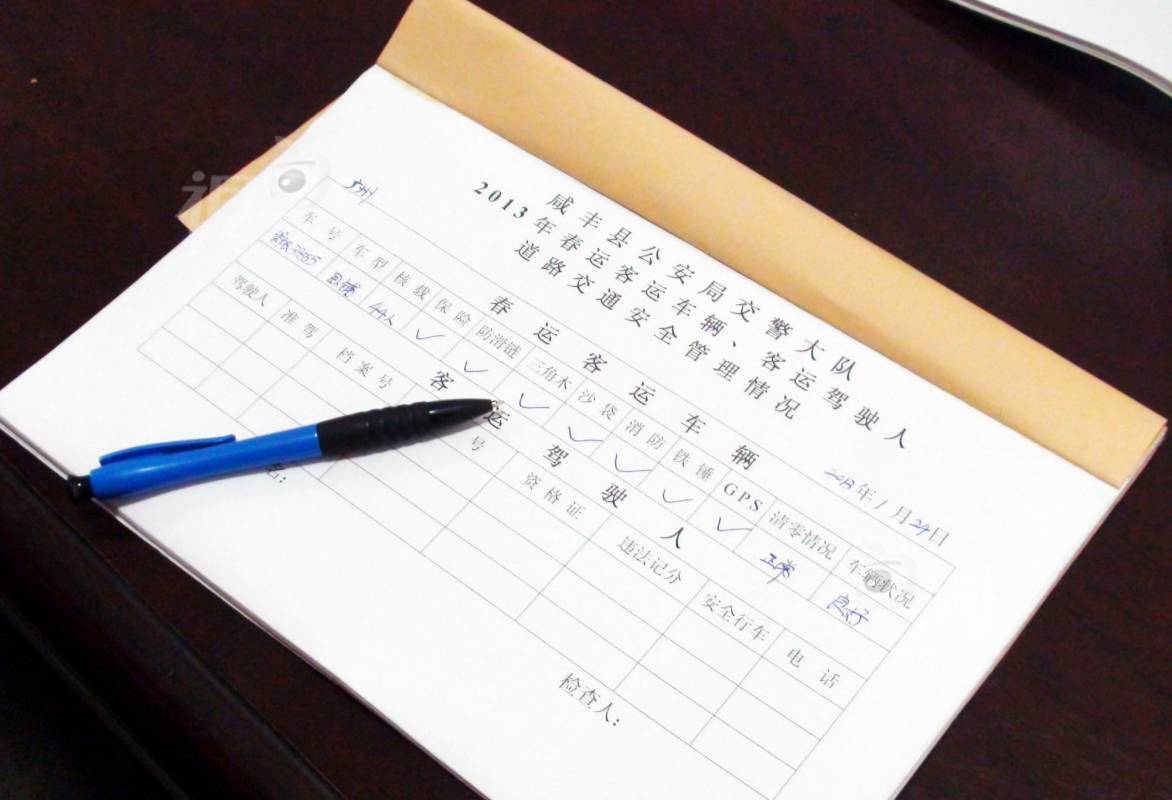 咸丰县公安局交警大队
2013年春运客运车辆、客运驾驶人
道路交通安全管理情况
广州
2013年1月24日
春运客运车辆
车号 车型 核载 保险 防滑链 三角木 沙袋 消防 铁锤 GPS 清零情况 车辆状况
44人 ✓ ✓ ✓ ✓ ✓ ✓ ✓ 正常 良好
客运驾驶人
驾驶人 准驾 档案号 号 资格证 违法记分 安全行车 电话
名：
检查人：